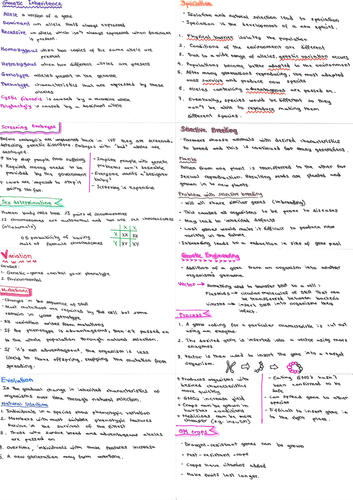 Genetic Inheritance
Allele: a version of a gene
Dominant: an allele that's always expressed
Recessive: an allele which isn't always expressed when dominant
is present.
Homozygous: when two copies of the same allele are
present
Heterozygous: when two different alleles are present
Genotype: alleles present in the genome
Phenotype: characteristics that are expressed by those
alleles
Cystic fibrosis is caused by a recessive allele
Polydactyly is caused by a dominant allele
Screening Embryos
Before embryos are implanted back in IVF they are screened,
detecting genetic disorders. Embryos with "bad" alleles are
destroyed
Help stop people from suffering
Regular money to be
provided by the government
Laws are imposed to stop it
going too far.
Implies people with genetic
problems aren't desirable
Everyone wants a "designer
baby"
Screening is expensive
Sex determination
Human body cells has 23 pairs of chromosomes
22 chromosomes are autosomal and one are sex chromosomes
0.5 probability of having
male or female chromosomes
X X
X XX XX
Y XY XY
Variation
Causes:
1. Genetic - genes control your phenotype
2. Environmental
Mutations
- Changes in the sequence of DNA
- Most mutations are repaired by the cell but some
remain in your genotype
- All variation arises from mutations
- If the phenotype is advantageous, then it's passed on
to the whole population through natural selection.
- If it's not advantageous, the organism is less
likely to have offspring, stopping the mutation from
spreading.
Evolution
Is the gradual change in inherited characteristics of
organisms over time through natural selection.
Natural Selection
1. Individuals in a species show phenotypic variation
2. Members with most suitable phenotypic features
having in the survival of the fittest
3. Those who survive breed and advantageous alleles
are passed on
4. Overtime, individuals with these features increase
5. A new generation may form overtime.
Speciation
Isolation and natural selection lead to speciation
Speciation is the development of a new species.
1. Physical barriers isolate the population
2. Conditions of the environment are different
3. Due to a wide range of alleles, genetic variation occurs
4. Populations become better adapted to the environment
5. After many generations reproducing, the most adapted
ones survive and produce new species
6. Alleles containing advantageous are passed on.
7. Eventually, species would be different so they
won't be able to reproduce making them
different species.
Selective Breeding
- Farmers choose animals with desired characteristics
to breed and this is continued for many generations.
Plants
Pollen from one plant is transferred to the other for
sexual reproduction. Resulting seeds are planted and
grown into new plants
Problems with selective breeding
- Will all share similar genes (inbreeding)
- This causes all organisms to be prone to diseases
- May lead to inherited defects
- Lost genes would make it difficult to produce new
variety in the future.
- Inbreeding leads to a reduction in size of gene pool
Genetic Engineering
- Addition of a gene from an organism into another
organism's genome.
Vector: something used to transfer DNA to a cell:
Plasmids: circular molecules of DNA that can
be transferred between bacteria
Viruses: insert DNA into organisms they
infect.
Process:
1. A gene coding for a particular characteristic is cut out
using an enzyme.
2. The desired gene is inserted into a vector using more
enzymes.
3. Vector is then used to insert the gene into a target
organism
Produces organisms with
desired characteristics
more quickly
GMOs increase yield
Crops can be grown in
harshest conditions
Medicines can be made
cheaper (e.g. insulin)
- Eating GMOs hasn't
been confirmed to be
safe.
- Can spread gene to other
species
- Difficult to insert gene in
to the right place.
GM crops
- Drought-resistant genes can be grown
- Pest-resistant crops
- Crops have vitamins added
- Make fruit last longer.